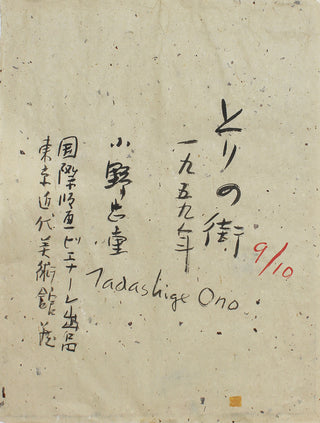 とりの街
一九五九年
9/10
小野忠重
Tadashige Ono
国際版画ビエンナーレ出品
東京近代美術館蔵